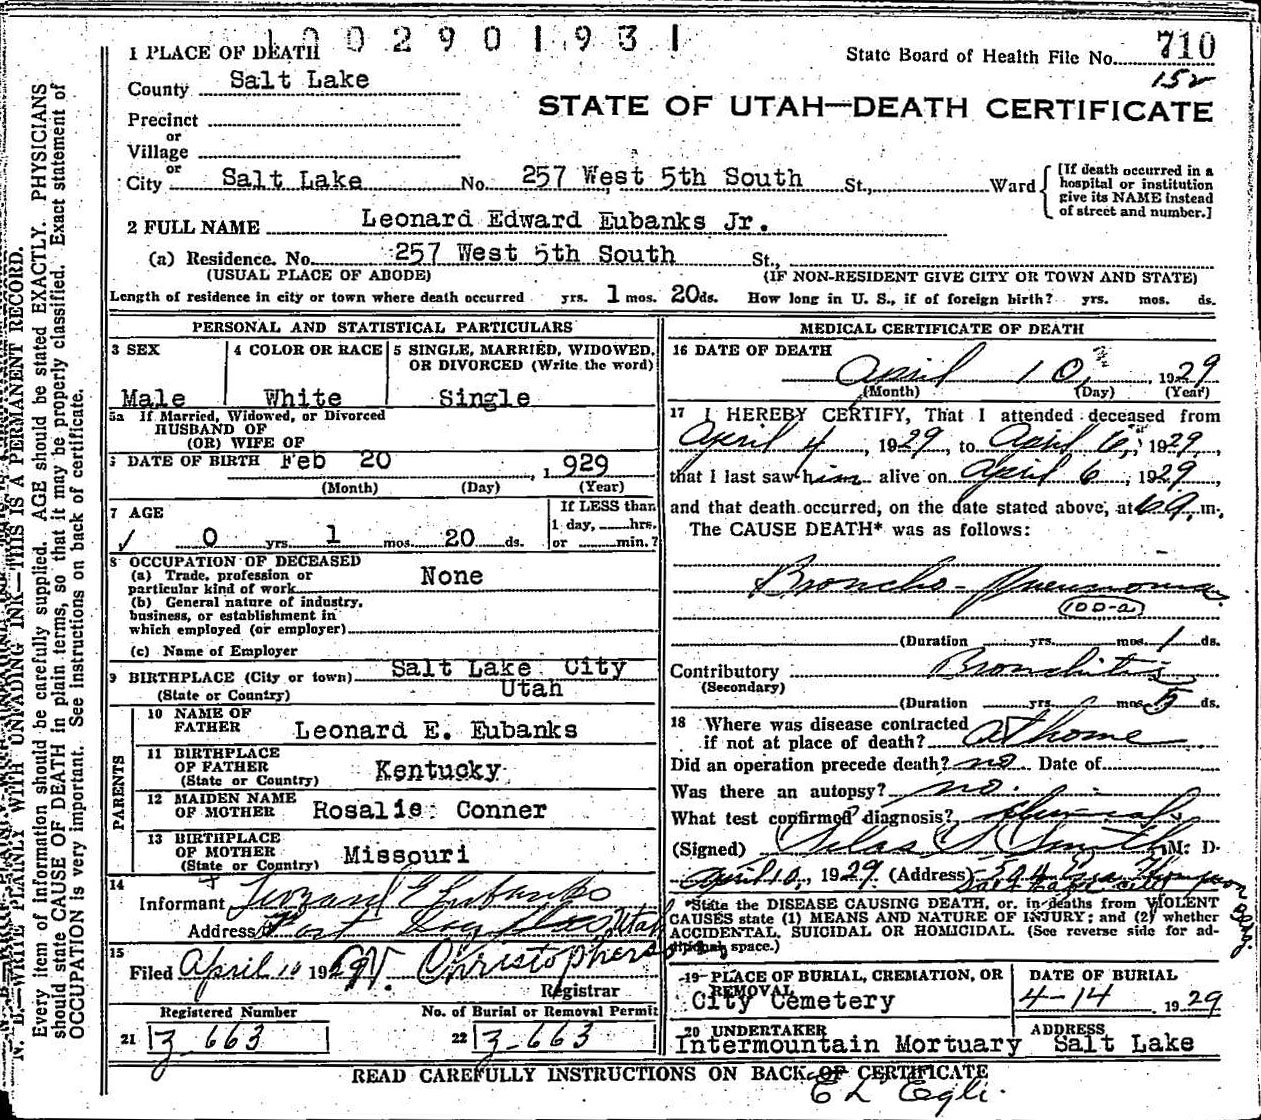 1002901931
1 PLACE OF DEATH
State Board of Health File No. 710
County Salt Lake
152
STATE OF UTAH—DEATH CERTIFICATE
Precinct
or
Village
or
City Salt Lake No. 257 West 5th South St., Ward
[If death occurred in a hospital or institution give its NAME instead of street and number.]
2 FULL NAME Leonard Edward Eubanks Jr.
(a) Residence. No. 257 West 5th South St.,
(USUAL PLACE OF ABODE) (IF NON-RESIDENT GIVE CITY OR TOWN AND STATE)
Length of residence in city or town where death occurred yrs. 1 mos. 20 ds. How long in U. S., if of foreign birth? yrs. mos. ds.
PERSONAL AND STATISTICAL PARTICULARS
3 SEX
Male
4 COLOR OR RACE
White
5 SINGLE, MARRIED, WIDOWED, OR DIVORCED (Write the word)
Single
5a If Married, Widowed, or Divorced
HUSBAND OF
(OR) WIFE OF
6 DATE OF BIRTH Feb 20, 1929
(Month) (Day) (Year)
7 AGE
0 yrs. 1 mos. 20 ds.
If LESS than
1 day, hrs.
or min.?
8 OCCUPATION OF DECEASED
(a) Trade, profession or
particular kind of work None
(b) General nature of industry,
business, or establishment in
which employed (or employer)
(c) Name of Employer
9 BIRTHPLACE (City or town) Salt Lake City
(State or Country) Utah
PARENTS
10 NAME OF FATHER Leonard E. Eubanks
11 BIRTHPLACE OF FATHER (State or Country) Kentucky
12 MAIDEN NAME OF MOTHER Rosalie Conner
13 BIRTHPLACE OF MOTHER (State or Country) Missouri
14
Informant Leonard E Eubanks
Address Fort Douglas, Utah
15
Filed April 10 1929 W. Christopherson
Registrar
Registered Number
21 Z 663
No. of Burial or Removal Permit
22 Z-663
MEDICAL CERTIFICATE OF DEATH
16 DATE OF DEATH
April 10, 1929
(Month) (Day) (Year)
17 I HEREBY CERTIFY, That I attended deceased from
April 4, 1929, to April 6, 1929,
that I last saw him alive on April 6, 1929,
and that death occurred, on the date stated above, at m.
The CAUSE DEATH* was as follows:
Broncho-Pneumonia
100-a
(Duration yrs. mos. 1 ds.
Contributory Bronchitis
(Secondary)
(Duration yrs. mos. 5 ds.
18 Where was disease contracted
if not at place of death? At home
Did an operation precede death? no Date of
Was there an autopsy? no.
What test confirmed diagnosis?
(Signed) Silas S Smith M. D.
April 10, 1929. (Address)
*State the DISEASE CAUSING DEATH, or, in deaths from VIOLENT
CAUSES state (1) MEANS AND NATURE OF INJURY; and (2) whether
ACCIDENTAL, SUICIDAL OR HOMICIDAL. (See reverse side for ad-
ditional space.)
19 PLACE OF BURIAL, CREMATION, OR REMOVAL
City Cemetery
DATE OF BURIAL
4-14 1929
20 UNDERTAKER
Intermountain Mortuary
ADDRESS
Salt Lake
READ CAREFULLY INSTRUCTIONS ON BACK OF CERTIFICATE
E L Egli.
N. B.—WRITE PLAINLY WITH UNFADING INK—THIS IS A PERMANENT RECORD.
Every item of information should be carefully supplied. AGE should be stated EXACTLY. PHYSICIANS
should state CAUSE OF DEATH in plain terms, so that it may be properly classified. Exact statement of
OCCUPATION is very important. See instructions on back of certificate.